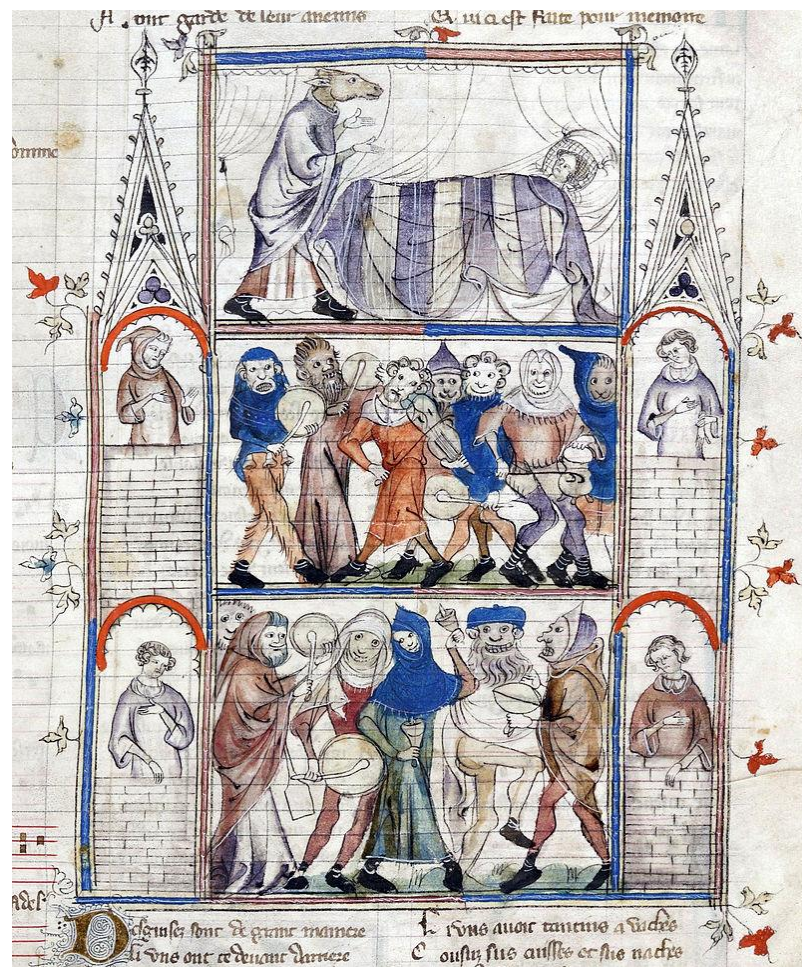 ont garde de leur anemis
Q ui ci est faite pour memoire
D esguisez sont de grant maniere
Li uns ont ce devant darriere
L i uns avoit tantins a vaches
C ousuz sus cuisses et sus naches